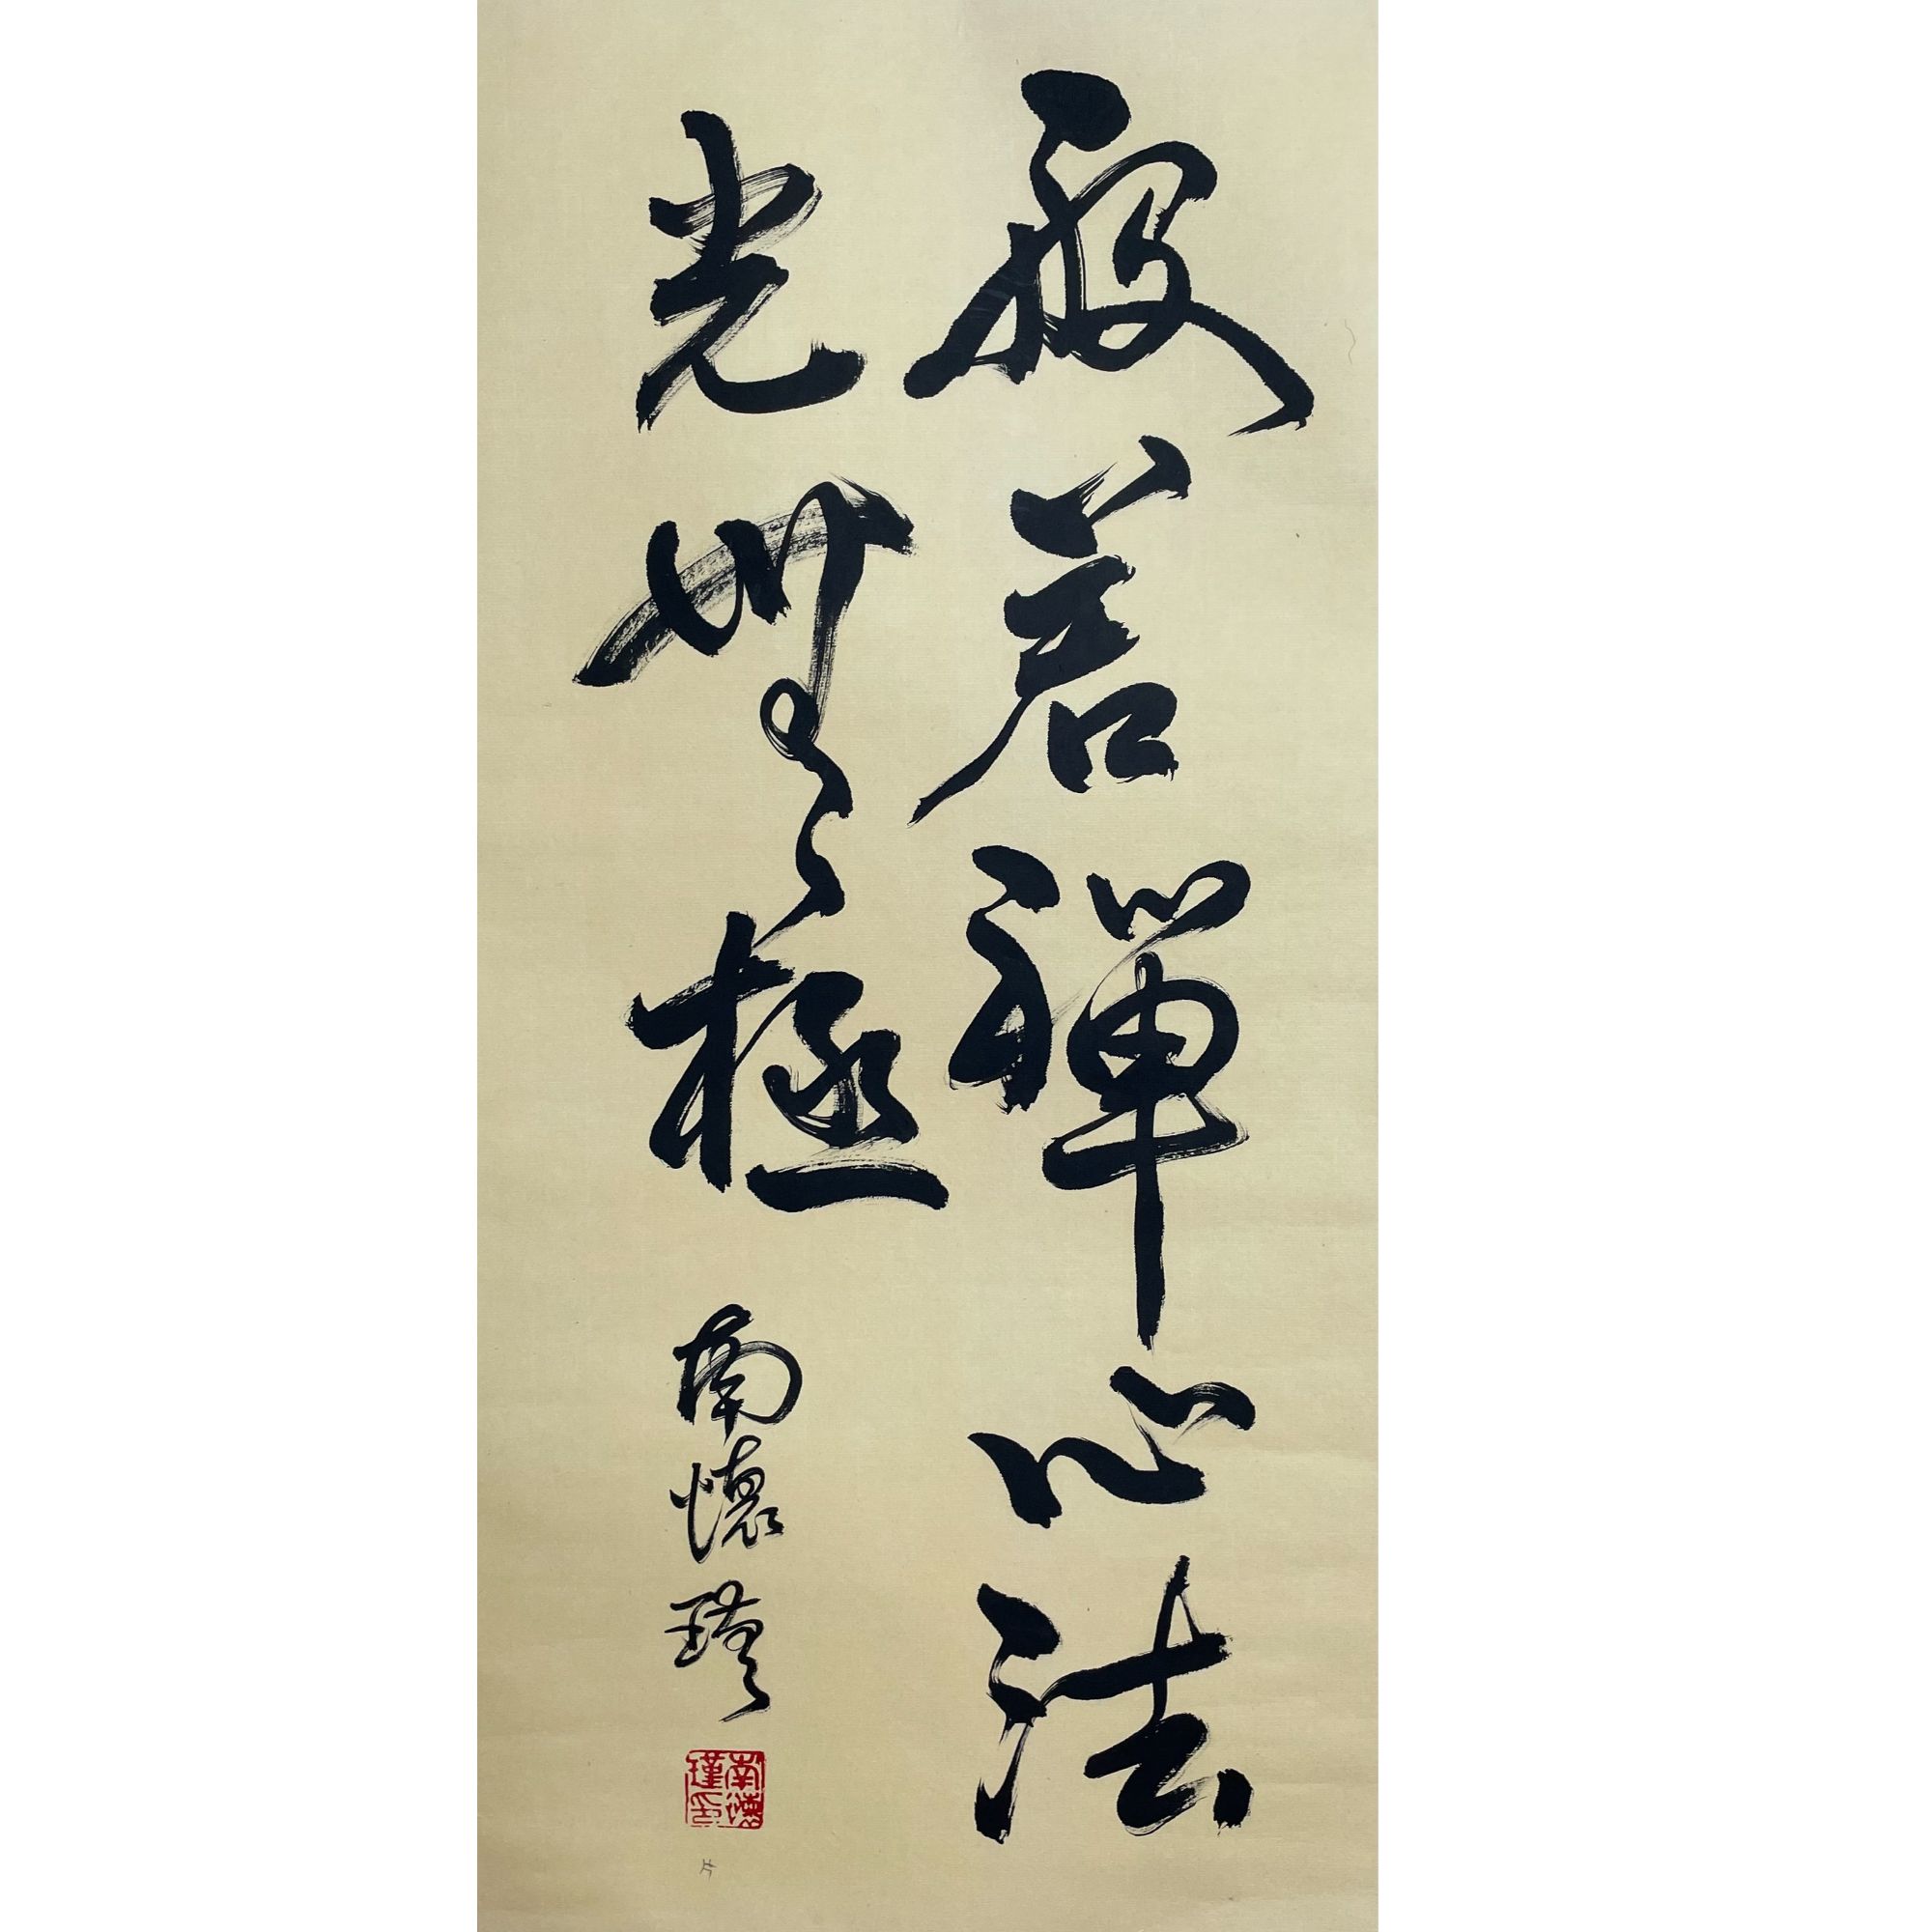 般若禪心法
光無極
南懷瑾
南懷瑾印